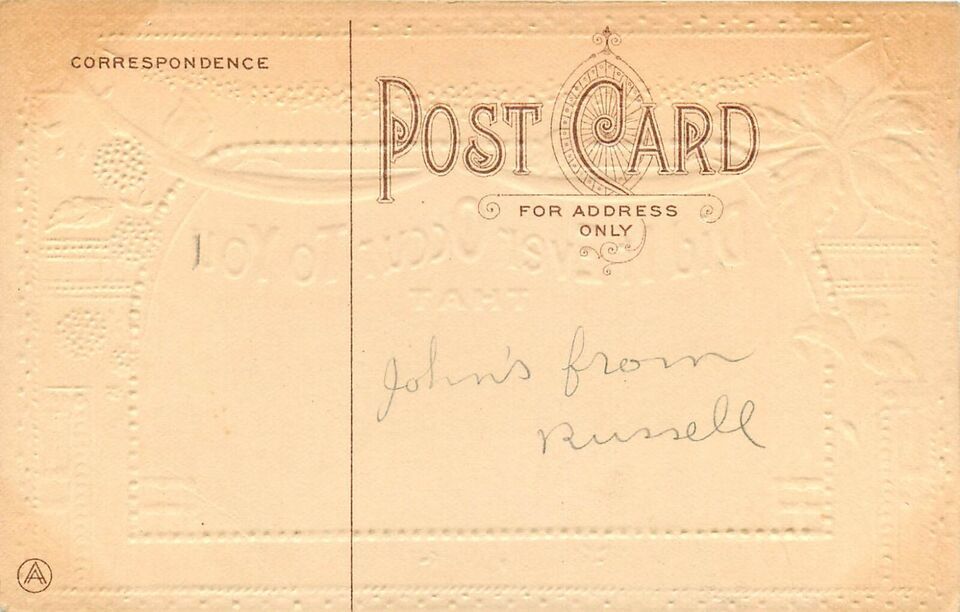 CORRESPONDENCE
POST CARD
FOR ADDRESS
ONLY
John's from
Russell
A